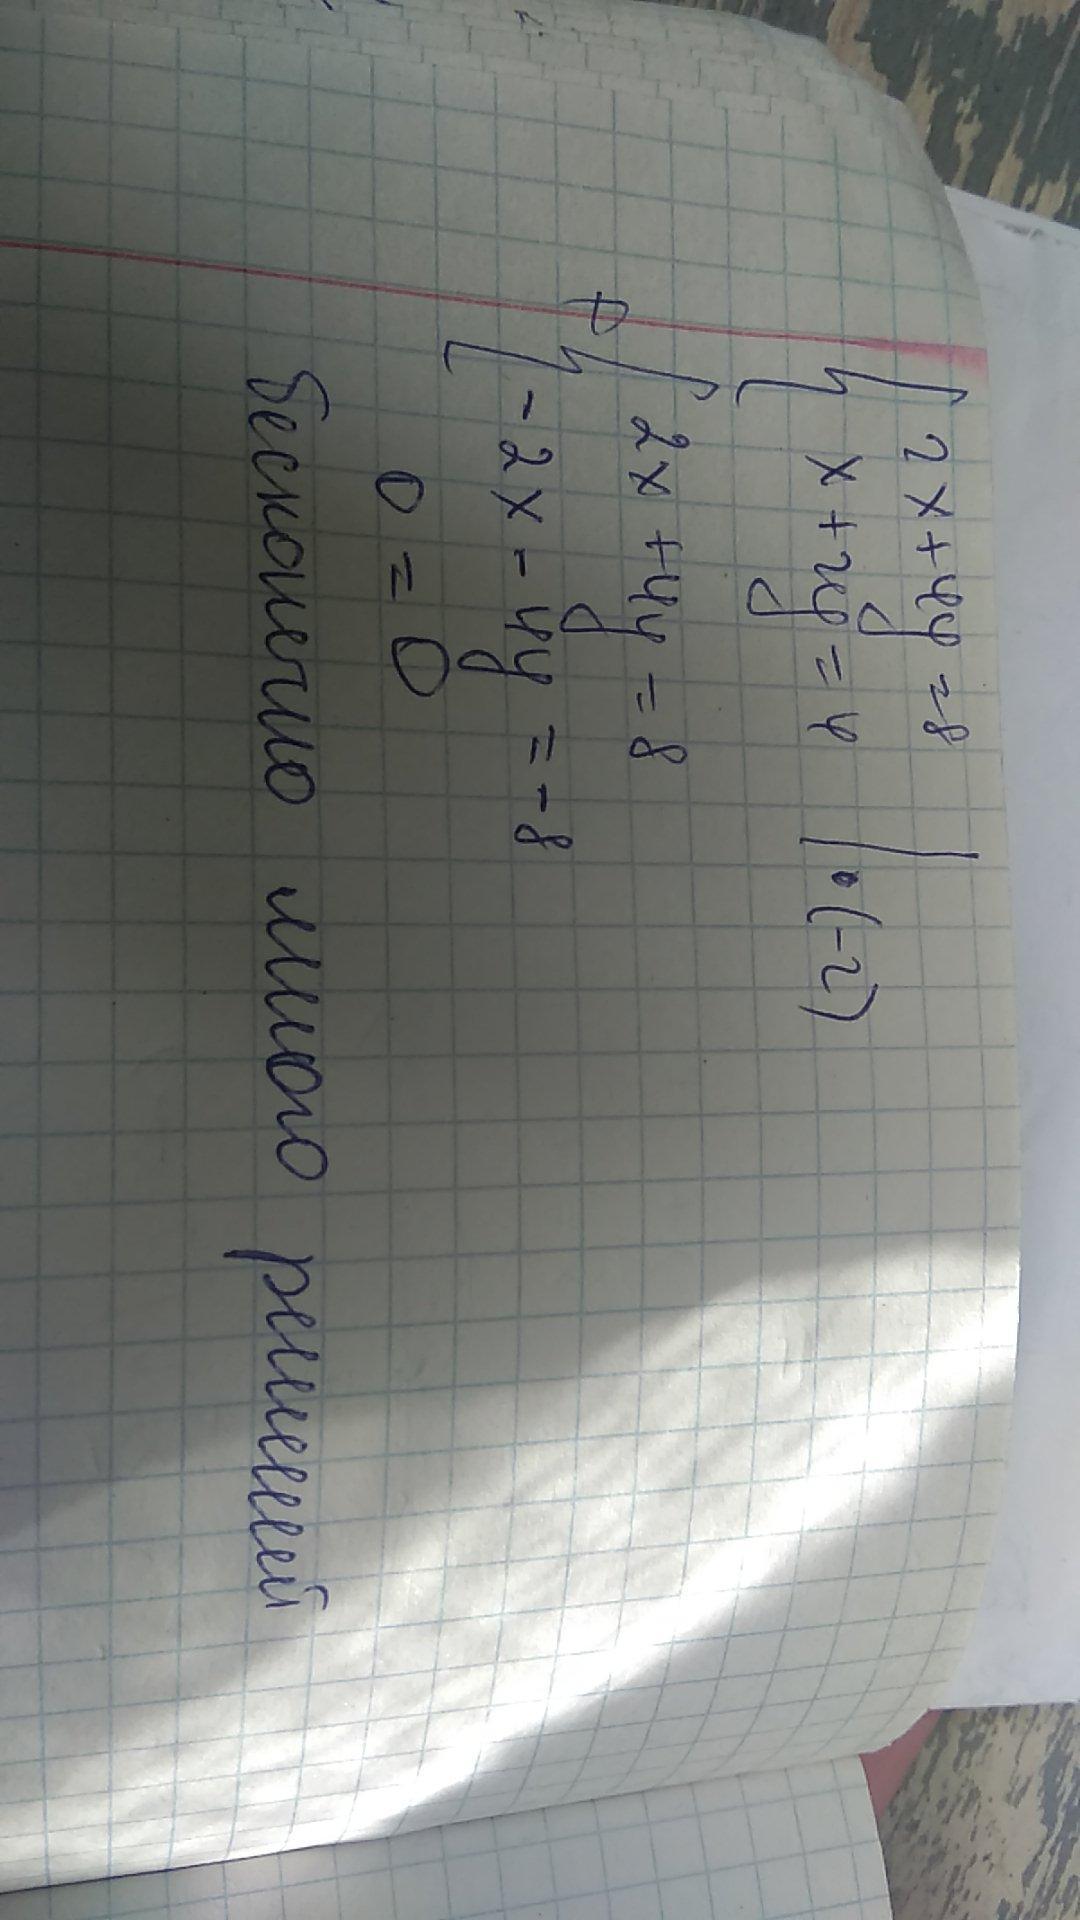 { 2x+4y=8
{ x+2y=4 | •(-2)
+ { 2x+4y=8
{ -2x-4y=-8
0=0
бесконечно много решений